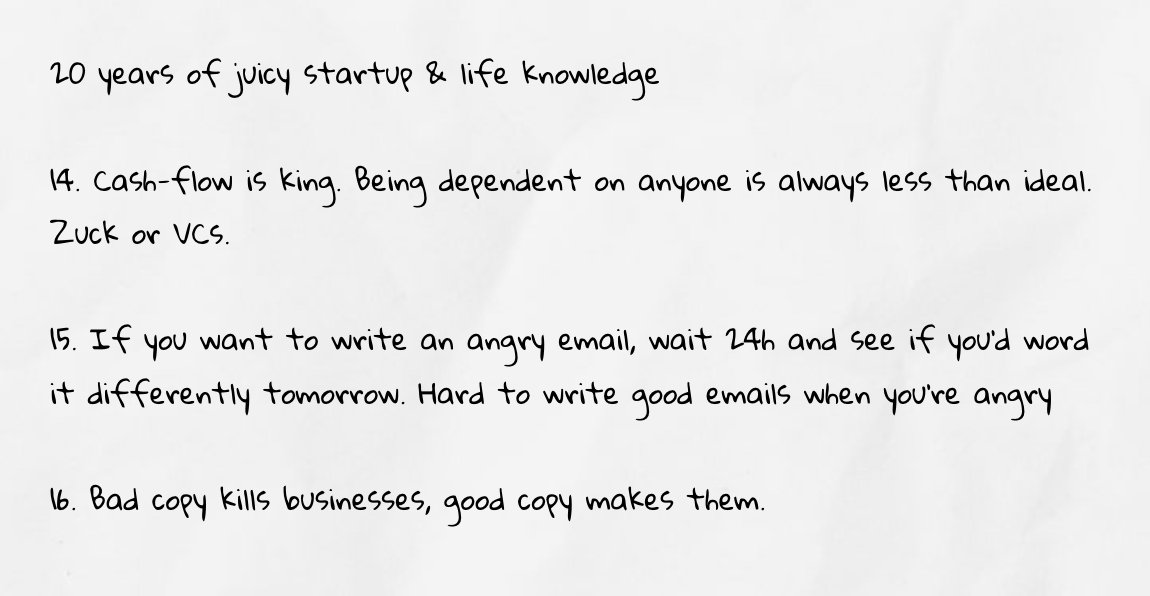 20 years of juicy startup & life knowledge
14. Cash-flow is king. Being dependent on anyone is always less than ideal.
Zuck or VCs.
15. If you want to write an angry email, wait 24h and see if you'd word
it differently tomorrow. Hard to write good emails when you're angry
16. Bad copy kills businesses, good copy makes them.